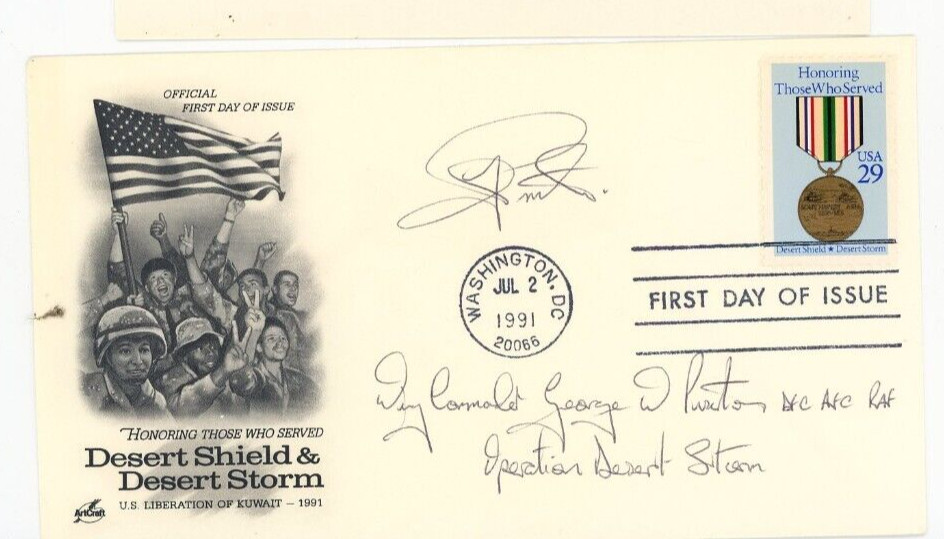 OFFICIAL
FIRST DAY OF ISSUE
Honoring
Those Who Served
USA
29
Desert Shield ★ Desert Storm
WASHINGTON, DC
JUL 2
1991
20066
FIRST DAY OF ISSUE
Wing Commander George W AFC RAF
Operation Desert Storm
HONORING THOSE WHO SERVED
Desert Shield &
Desert Storm
U.S. LIBERATION OF KUWAIT – 1991
ArtCraft